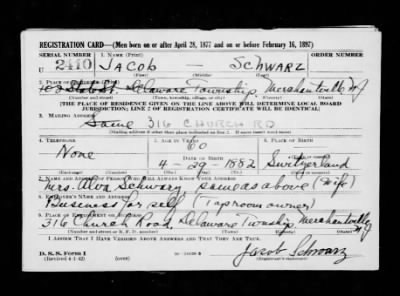 REGISTRATION CARD—(Men born on or after April 28, 1877 and on or before February 16, 1897)
SERIAL NUMBER 1. NAME (Print) ORDER NUMBER
U 2410 JACOB – SCHWARZ
(First) (Middle) (Last)
2. PLACE OF RESIDENCE (Print)
Delaware Township, Merchantville NJ
(Number and street) (Town, township, village, or city) (County) (State)
[THE PLACE OF RESIDENCE GIVEN ON THE LINE ABOVE WILL DETERMINE LOCAL BOARD
JURISDICTION; LINE 2 OF REGISTRATION CERTIFICATE WILL BE IDENTICAL]
3. MAILING ADDRESS
Same 316 CHURCH RD
(Mailing address if other than place indicated on line 2. If same insert word same)
4. TELEPHONE 5. AGE IN YEARS 6. PLACE OF BIRTH
None 60
DATE OF BIRTH
4-29-1882 Switzerland
7. NAME AND ADDRESS OF PERSON WHO WILL ALWAYS KNOW YOUR ADDRESS
Mrs. Alva Schwarz same as above (Wife)
8. EMPLOYER'S NAME AND ADDRESS
Business for self (Taproom owner)
9. PLACE OF EMPLOYMENT OR BUSINESS
316 Church Road, Delaware Township Merchantville NJ
(Number and street or R. F. D. number) (Town) (County) (State)
I AFFIRM THAT I HAVE VERIFIED ABOVE ANSWERS AND THAT THEY ARE TRUE.
D. S. S. Form 1
(Revised 4-1-42) Jacob Schwarz
(Registrant's signature)